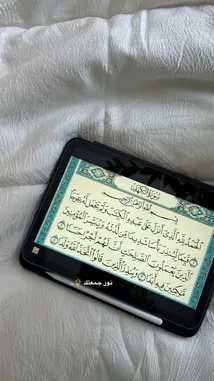 سورة الكهف
بسم الله الرحمن الرحيم
الحمد لله الذي أنزل على عبده الكتاب ولم يجعل له عوجا
قيما لينذر بأسا شديدا من لدنه ويبشر المؤمنين
الذين يعملون الصالحات أن لهم أجرا حسنا
ماكثين فيه أبدا وينذر الذين قالوا اتخذ الله ولدا
نور جمعتك